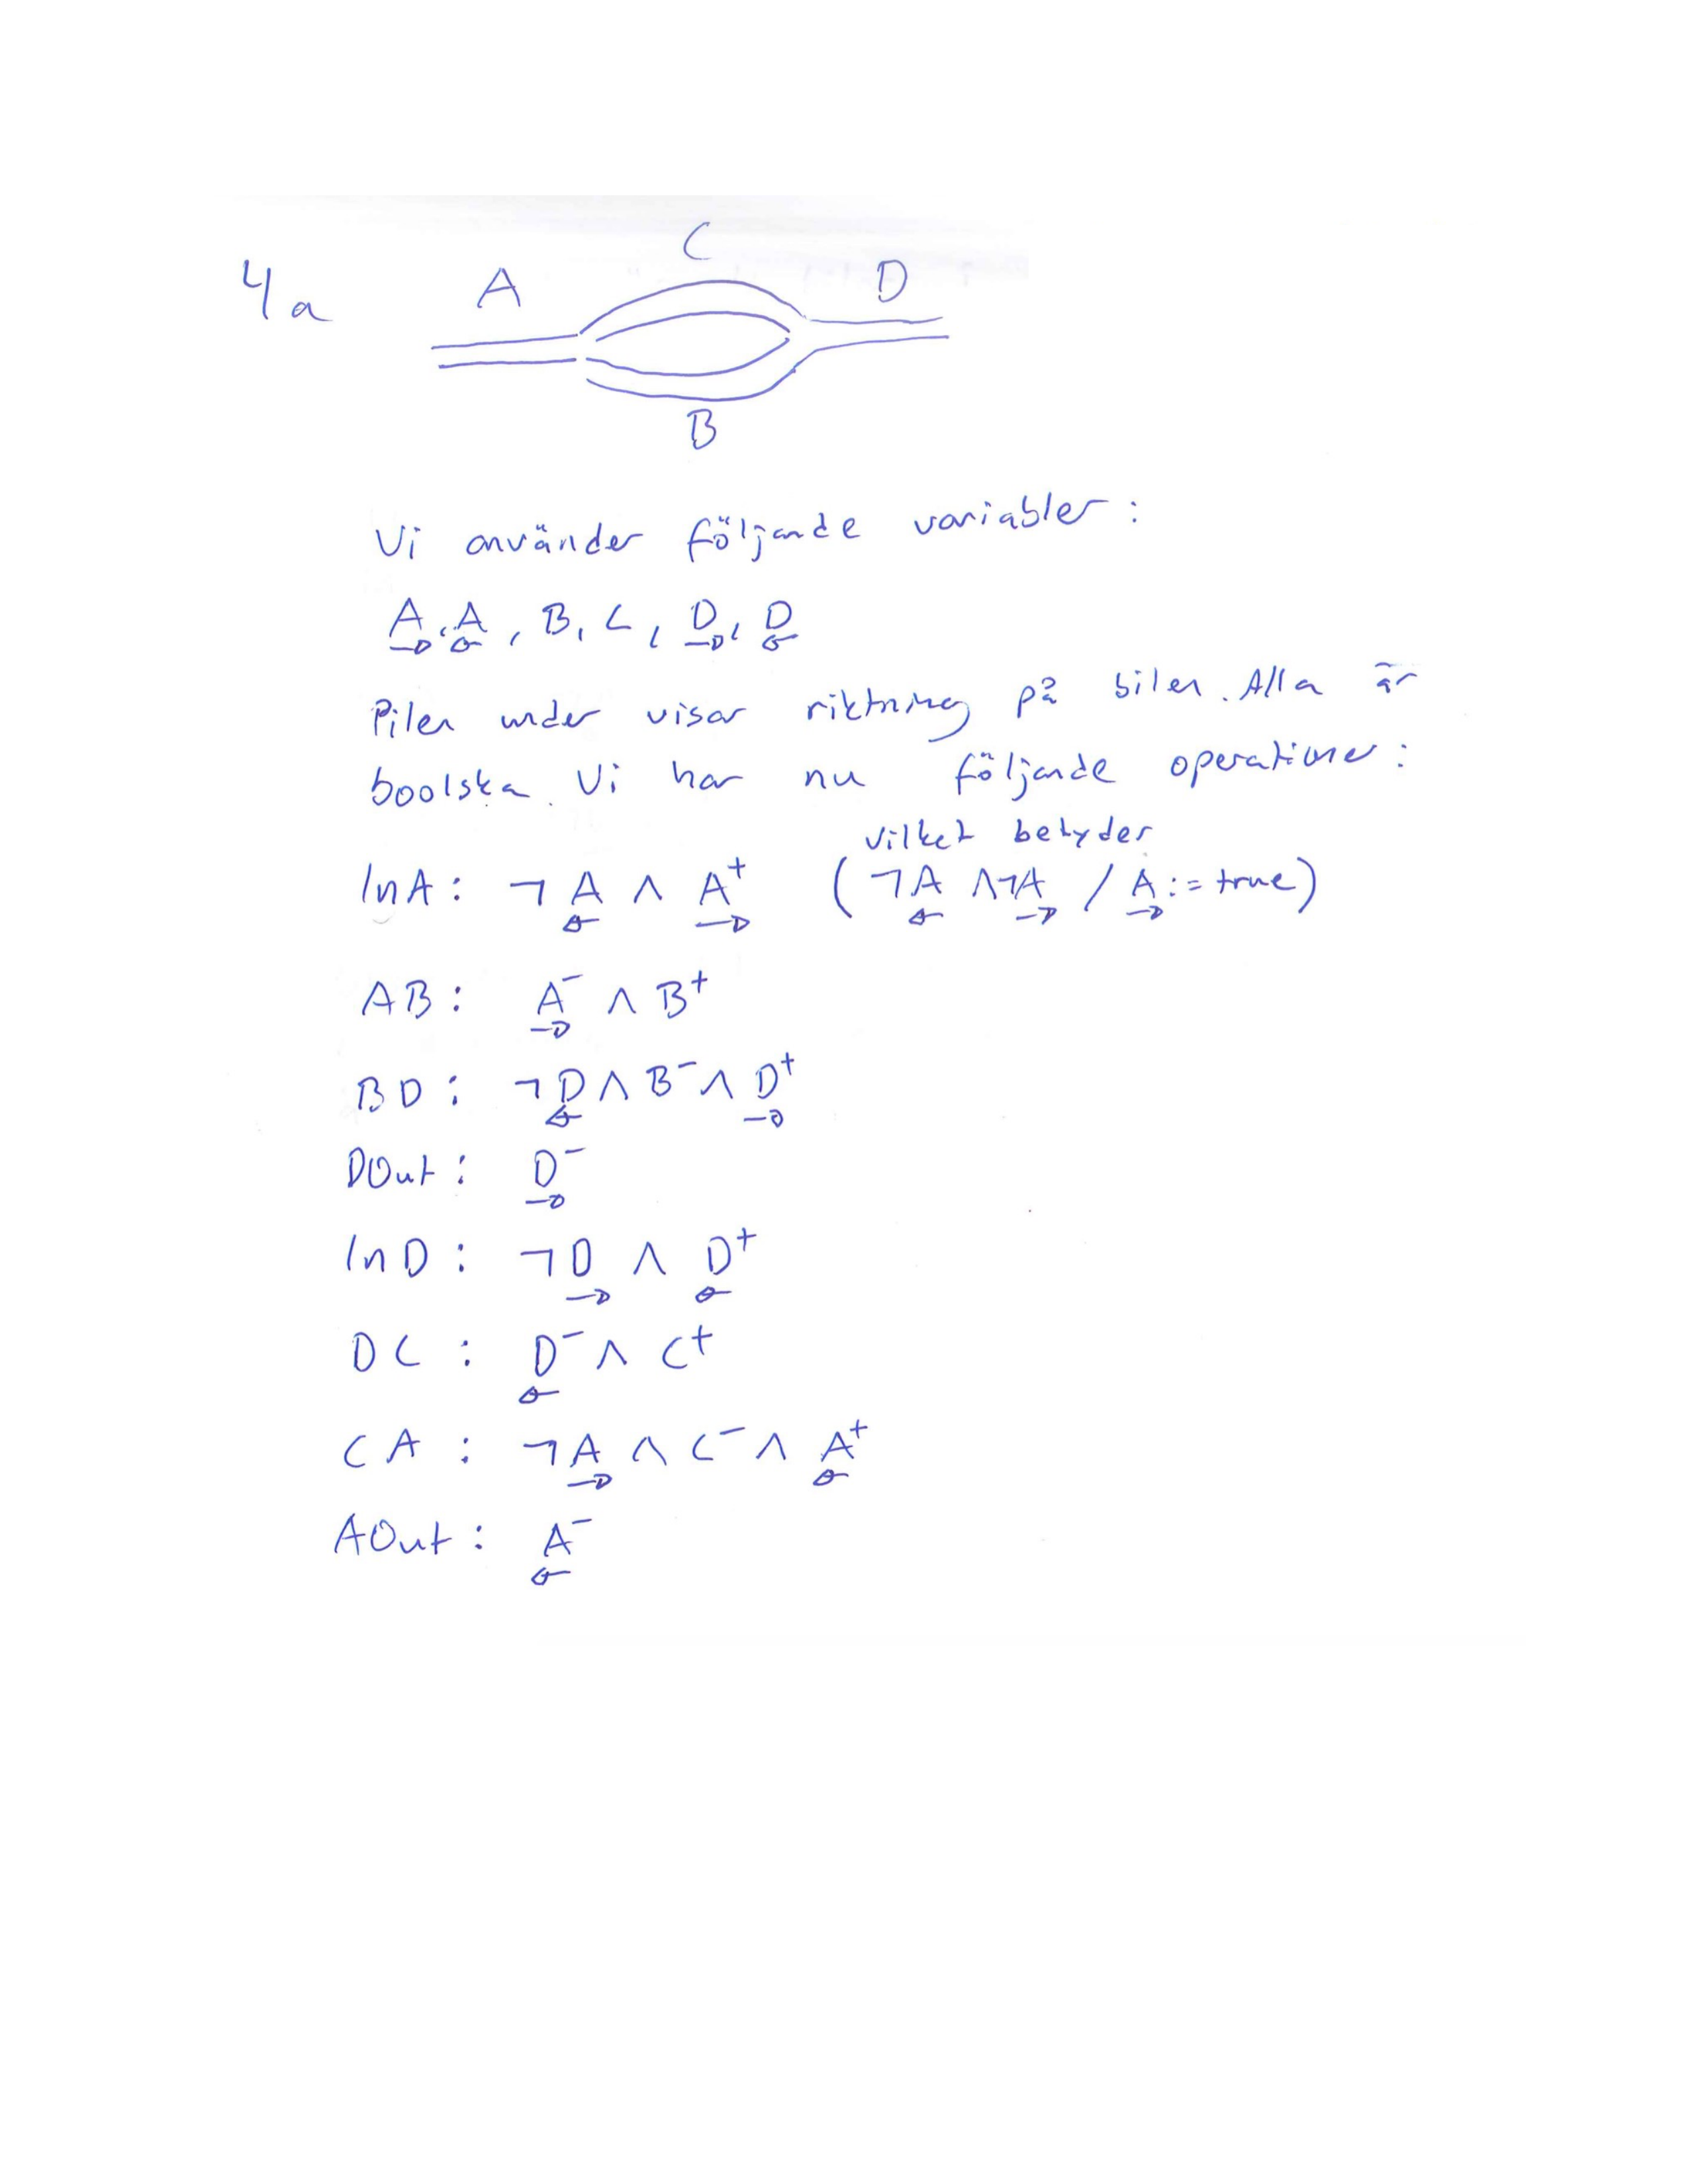 C
4a A D
B
Vi använder följande variabler :
A→, A←, B, C, D→, D←
Pilen under visar riktning på bilen. Alla är
boolska. Vi har nu följande operationer :
vilket betyder
InA : ¬A← ∧ A→⁺ (¬A← ∧ ¬A→ / A→ := true)
AB : A→⁻ ∧ B⁺
BD : ¬D← ∧ B⁻ ∧ D→⁺
DOut : D→⁻
InD : ¬D→ ∧ D←⁺
DC : D←⁻ ∧ C⁺
CA : ¬A→ ∧ C⁻ ∧ A←⁺
AOut : A←⁻